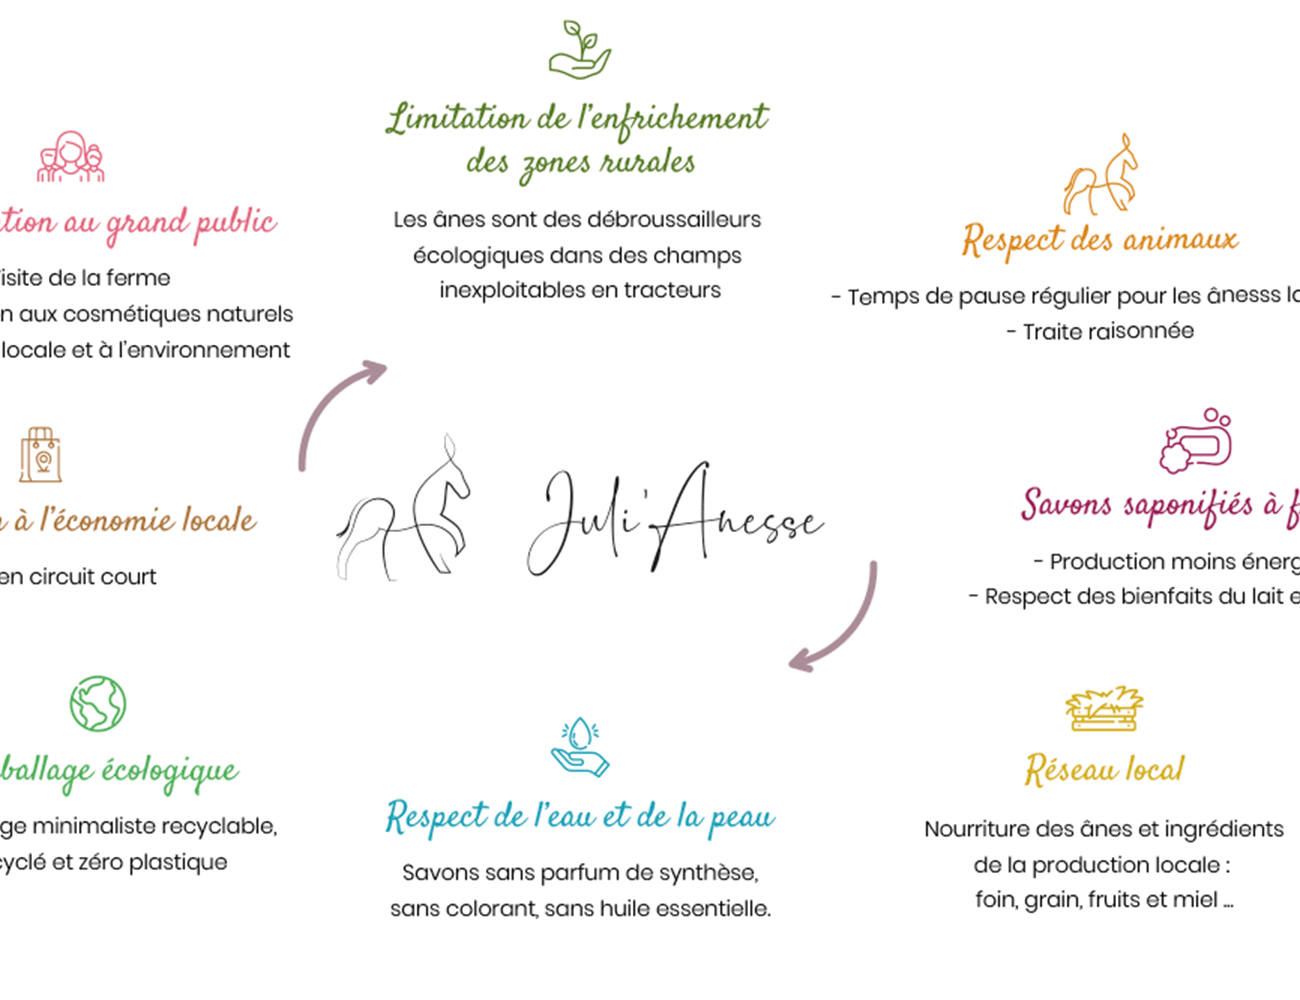 Limitation de l'enfrichement
des zones rurales
Les ânes sont des débroussailleurs
écologiques dans des champs
inexploitables en tracteurs
Respect des animaux
- Temps de pause régulier pour les ânesss
- Traite raisonnée
Savons saponifiés à
- Production moins
- Respect des bienfaits du lait
Réseau local
Nourriture des ânes et ingrédients
de la production locale :
foin, grain, fruits et miel ...
Respect de l'eau et de la peau
Savons sans parfum de synthèse,
sans colorant, sans huile essentielle.
écologique
minimaliste recyclable,
et zéro plastique
à l'économie locale
en circuit court
au grand public
de la ferme
aux cosmétiques naturels
locale et à l'environnement
Juli'Anesse